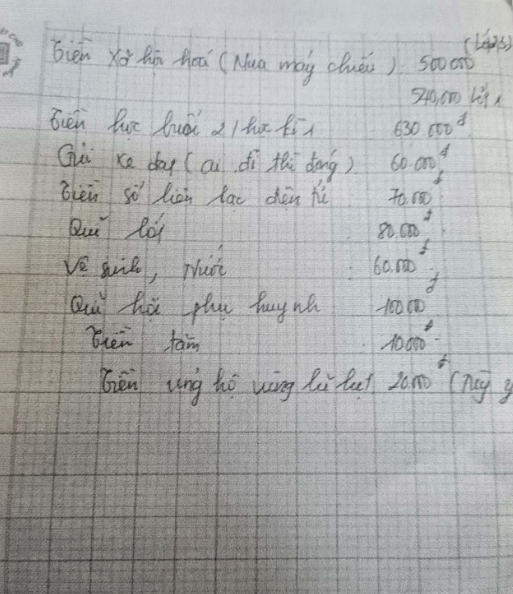 Tiền xã hội hoá (Mua máy chiếu) 500 000 (Lớp 3)
540,000 Lớp 1
Tiền học buổi 2/ học kì 1 630.000đ
Gửi xe đạp (ai đi thì đóng) 60.000đ
Tiền sổ liên lạc điện tử 70.000
Quĩ lớp 80.000đ
Vệ sinh, Nước : 60.000đ
Quĩ hội phụ huynh 100.000đ
Tiền tăm 10.000đ
Tiền ủng hộ vùng lũ lụt 20.000đ (Tuỳ y